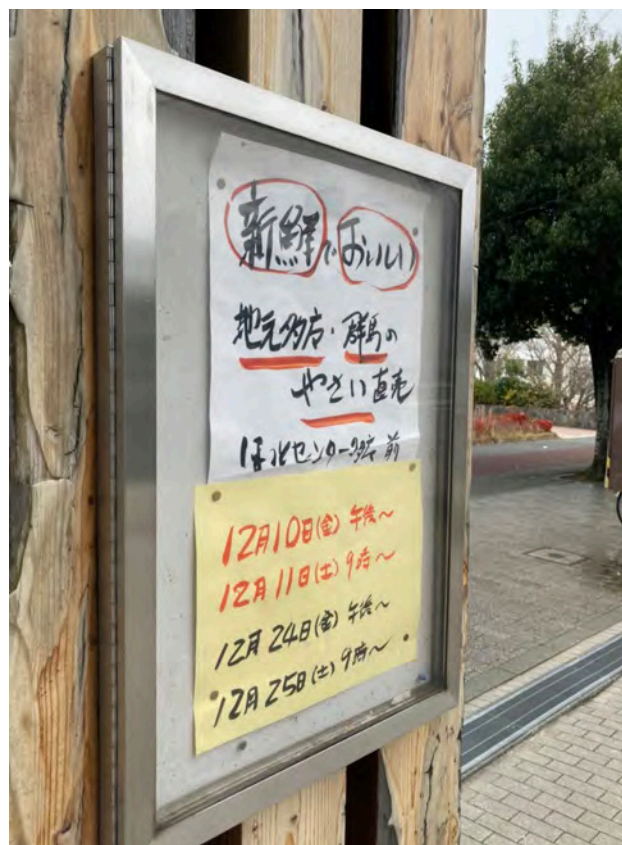 新鮮でおいしい
地元多方・群馬の
やさい直売
センター 前
12月10日(金) 午後～
12月11日(土) 9時～
12月24日(金) 午後～
12月25日(土) 9時～